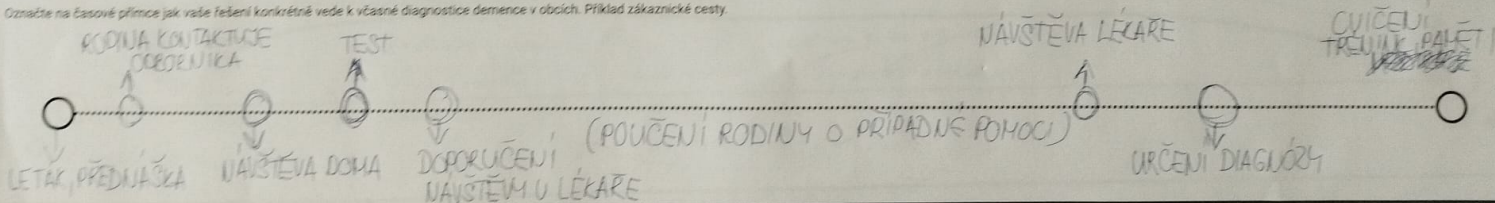 Označte na časové přímce jak vaše řešení konkrétně vede k včasné diagnostice demence v obcích. Příklad zákaznické cesty.
RODINA KONTAKTUJE
ODBORNÍKA
TEST
NÁVŠTĚVA LÉKAŘE
CVIČENÍ
TRÉNINK PAMĚTI
LETÁK, PŘEDNÁŠKA
NÁVŠTĚVA DOMA
DOPORUČENÍ
NÁVŠTĚVY U LÉKAŘE
(POUČENÍ RODINY O PŘÍPADNÉ POMOCI)
URČENÍ DIAGNÓZY